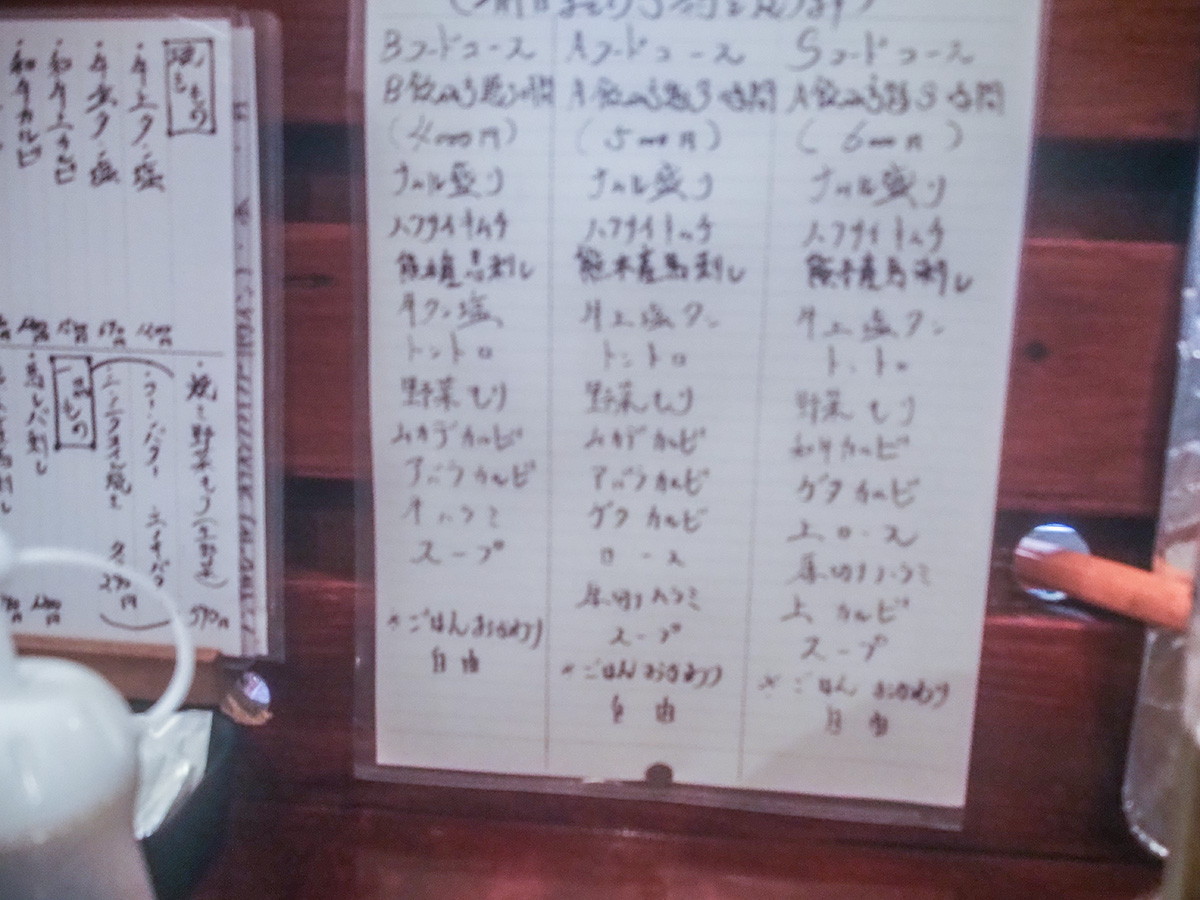 Bフードコース
B飲み放題3時間
(4000円)
ナムル盛り
ハクサイキムチ
熊本産馬刺し
牛タン塩
トントロ
野菜もり
ムカデカルビ
アバラカルビ
牛ハラミ
スープ
※ごはんおかわり
自由
Aフードコース
A飲み放題3時間
(5000円)
ナムル盛り
ハクサイキムチ
熊本産馬刺し
牛上塩タン
トントロ
野菜もり
ムカデカルビ
アバラカルビ
ゲタカルビ
ロース
厚切りハラミ
スープ
※ごはんおかわり
自由
Sフードコース
A飲み放題3時間
(6000円)
ナムル盛り
ハクサイキムチ
熊本産馬刺し
牛上塩タン
トントロ
野菜もり
和牛カルビ
ゲタカルビ
上ロース
厚切りハラミ
上カルビ
スープ
※ごはんおかわり
自由
焼もの
・牛上タン塩
・牛タン塩
・和牛上カルビ
・和牛カルビ
・焼き野菜もり(生野菜)
570円
一品もの
・馬レバ刺し